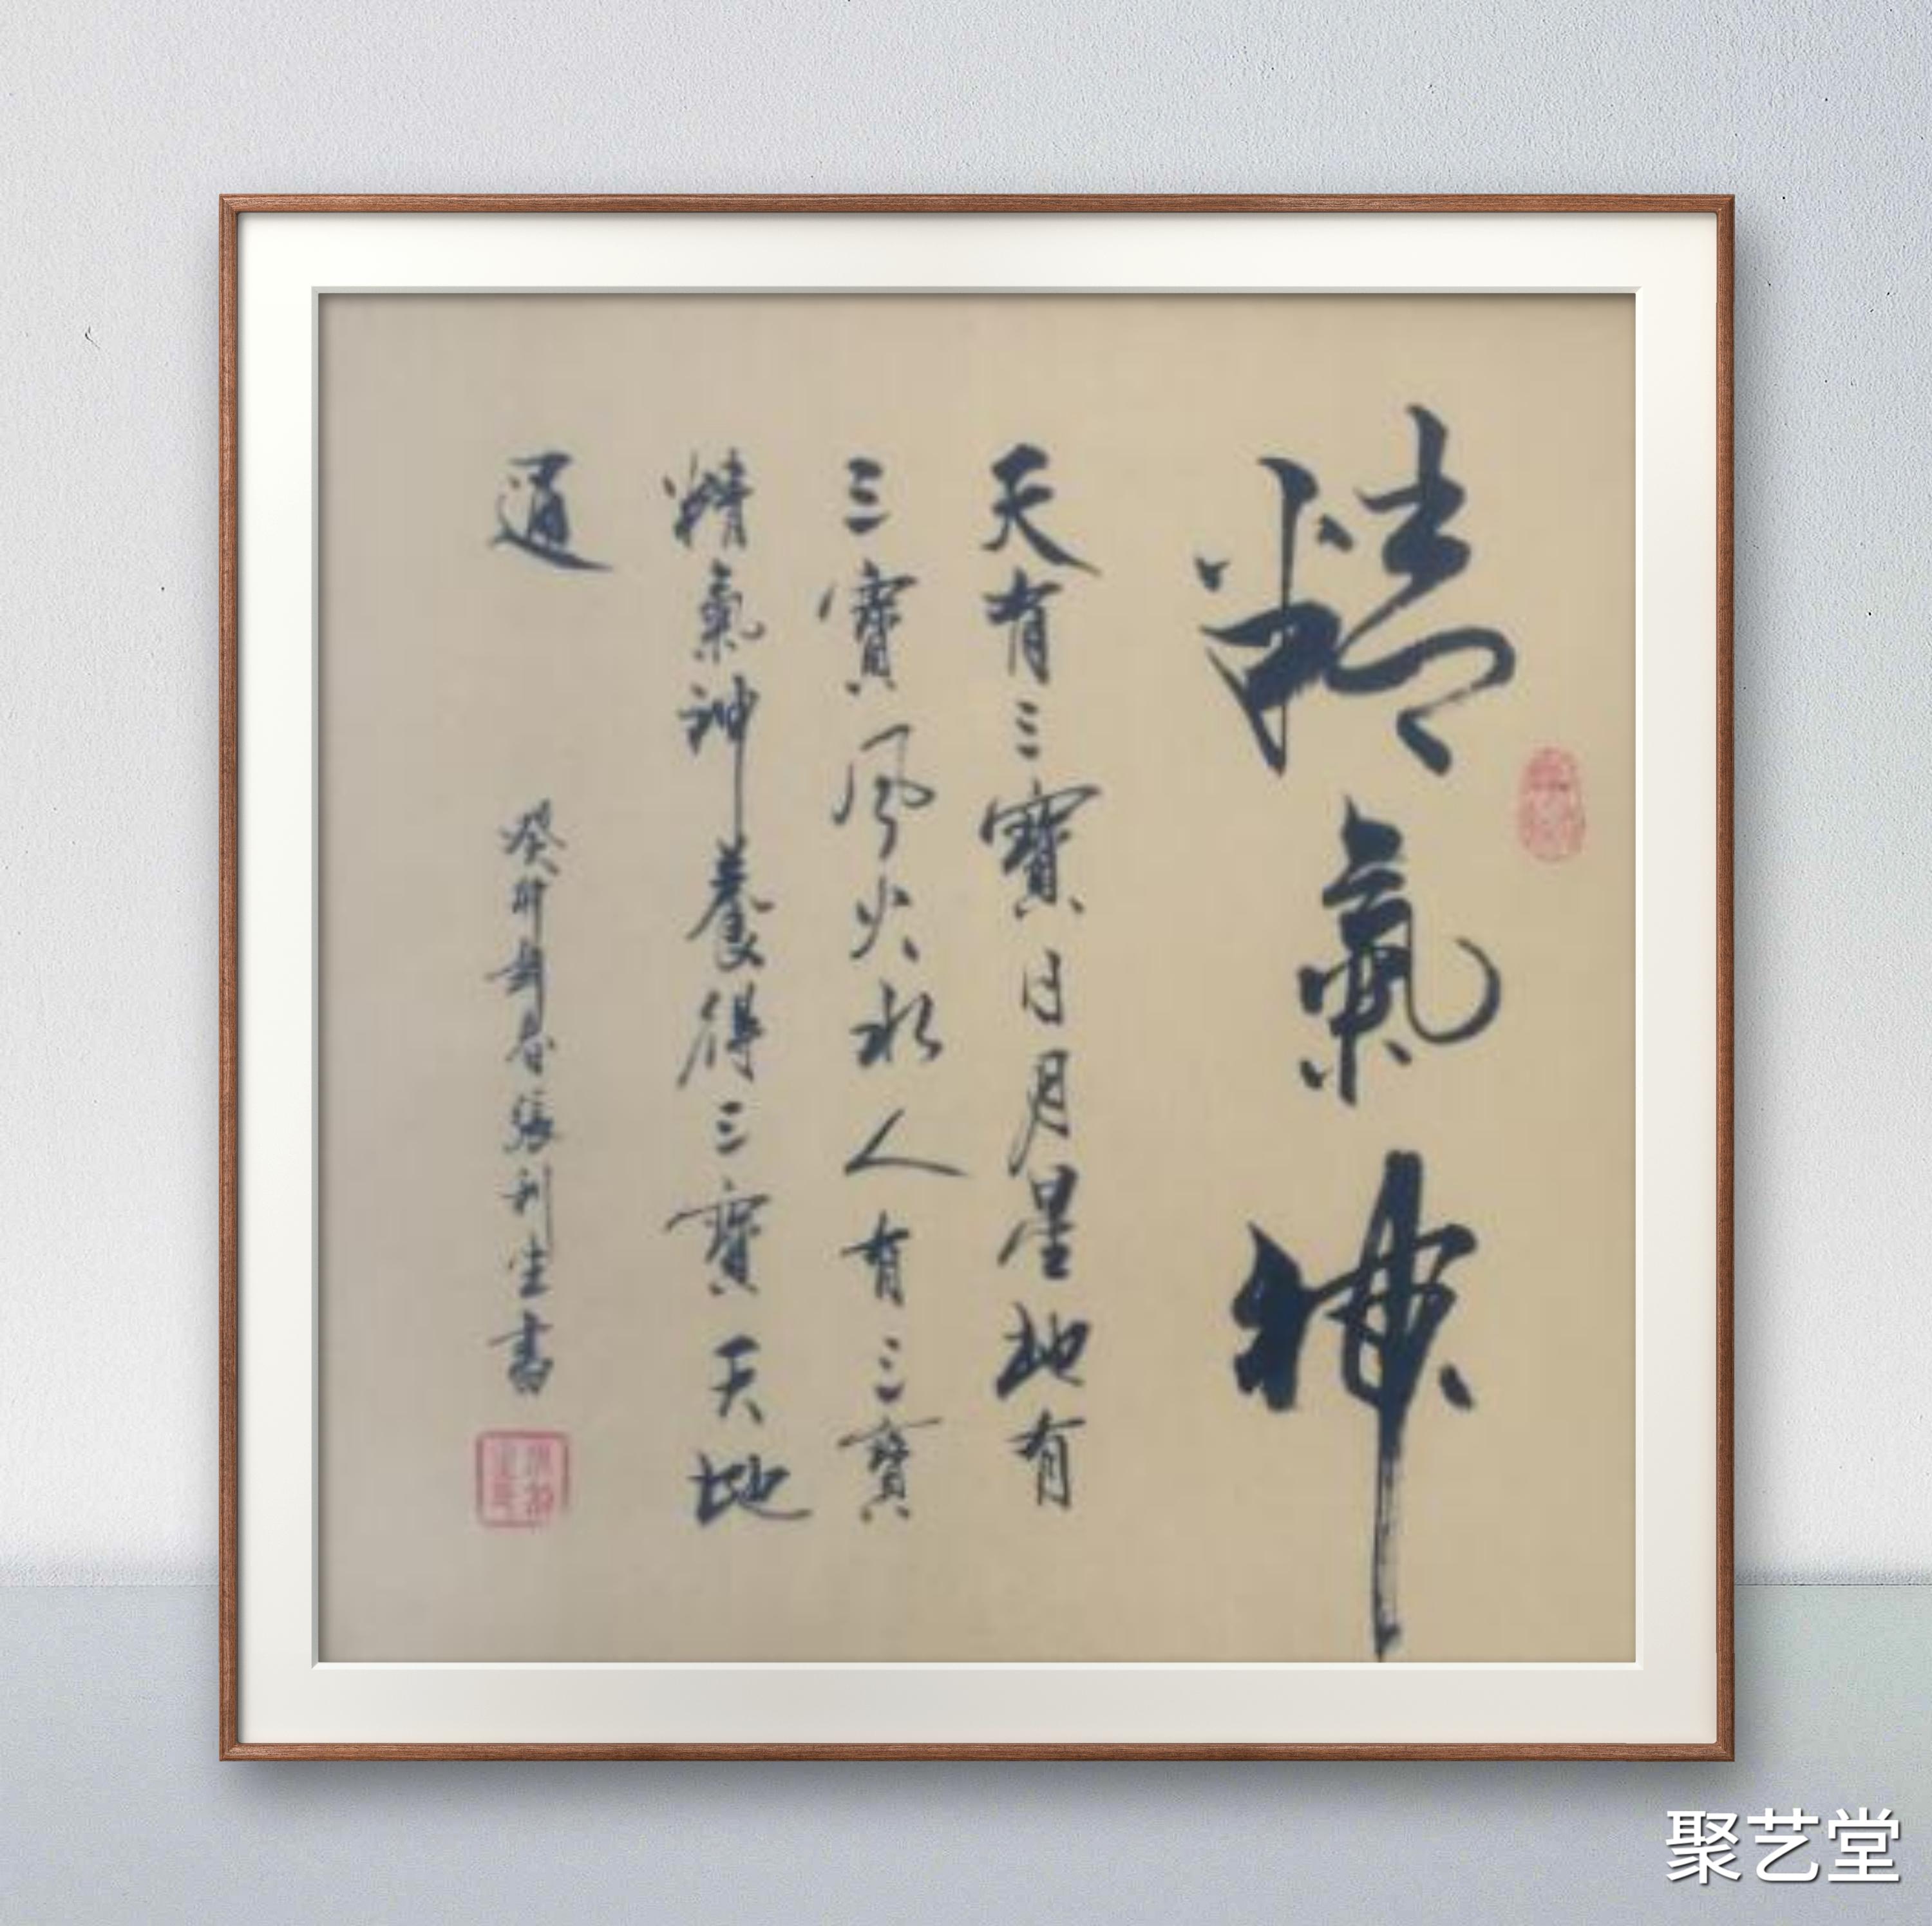 精氣神
天有三寶日月星地有
三寶風火水人有三寶
精氣神養得三寶天地
通
癸卯年春張利生書
聚艺堂